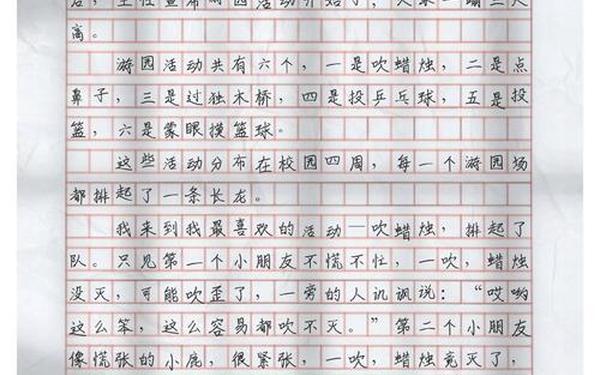 离。
游园活动共有六个，一是吹蜡烛，二是点
鼻子，三是过独木桥，四是投乒乓球，五是投
篮，六是蒙眼摸篮球。
这些活动分布在校园四周，每一个游园场
都排起了一条长龙。
我来到我最喜欢的活动—吹蜡烛，排起了
队。只见第一个小朋友不慌不忙，一吹，蜡烛
没灭，可能吹歪了，一旁的人讥讽说：“哎哟
这么笨，这么容易都吹不灭。”第二个小朋友
像慌张的小鹿，很紧张，一吹，蜡烛竟灭了，